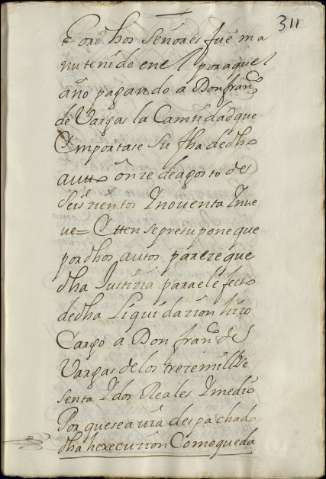 311
Por dhos señores fue ma
nutenido en el por aquel
año pagando a Don franco
de Vargas la Cantidad que
Ymportase Su fha de dho
auto onze de agosto de
seiscientos Y noventa Y nue
ve = Etten se presupone que
por dhos autos pareze que
dha Justicia para el efecto
de dha Liquidazion hizo
Cargo a Don franco de
Vargas de los treze mill Se
senta Y dos Reales Y medio
Por que se avia despachado
dha execuzion Como queda